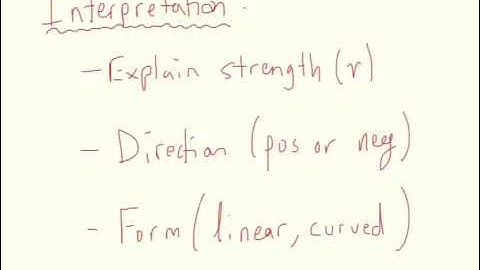 Interpretation.
- Explain strength (r)
- Direction (pos or neg)
- Form (linear, curved)